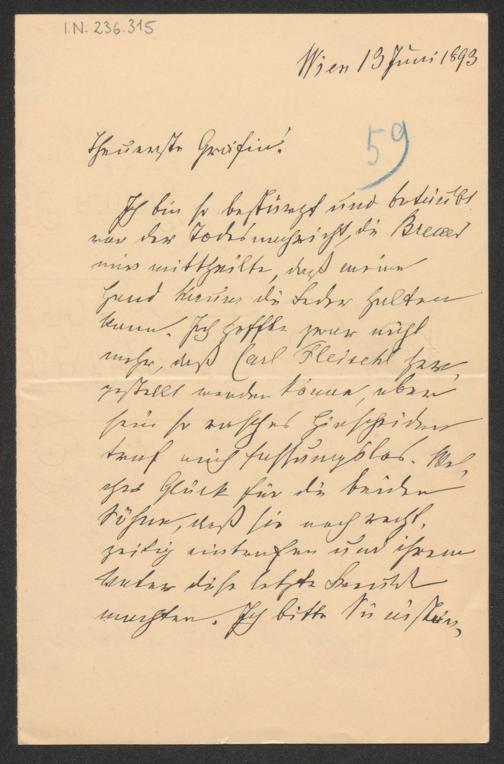 I.N. 236.315
Wien 13 Juni 1893
59
Theuerste Gräfin!
Ich bin so bestürzt und betäubt
von der Todesnachricht, die Breuer
mir mittheilte, daß meine
Hand kaum die Feder halten
kann. Ich hoffte zwar nicht
mehr, daß Carl Fleischl her-
gestellt werden könne, aber
sein so rasches Hinscheiden
traf mich fassungslos. Wel-
ches Glück für die beiden
Söhne, daß sie noch recht-
zeitig eintrafen und ihrem
Vater diese letzte Freude
machten. Ich bitte Sie